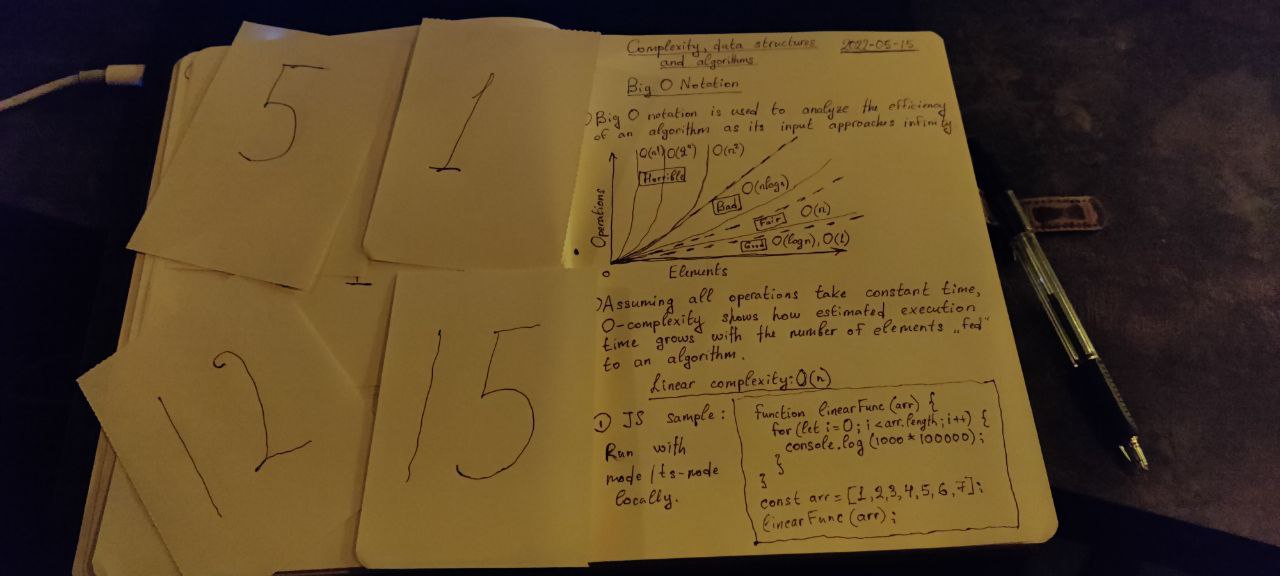 5
1
12
15
Complexity, data structures
and algorithms
2022-05-15
Big O Notation
Big O notation is used to analyze the efficiency
of an algorithm as its input approaches infinity
O(n!) O(2ⁿ) O(n²)
Horrible
O(nlogn)
Bad
O(n)
Fair
Good
O(logn), O(1)
Operations
0
Elements
Assuming all operations take constant time,
O-complexity shows how estimated execution
time grows with the number of elements „fed“
to an algorithm.
Linear complexity: O(n)
1 JS sample:
Run with
node / ts-node
locally.
function linearFunc (arr) {
for (let i=0; i < arr.length; i++) {
console.log (1000 * 100000);
}
}
const arr = [1,2,3,4,5,6,7];
linearFunc (arr);